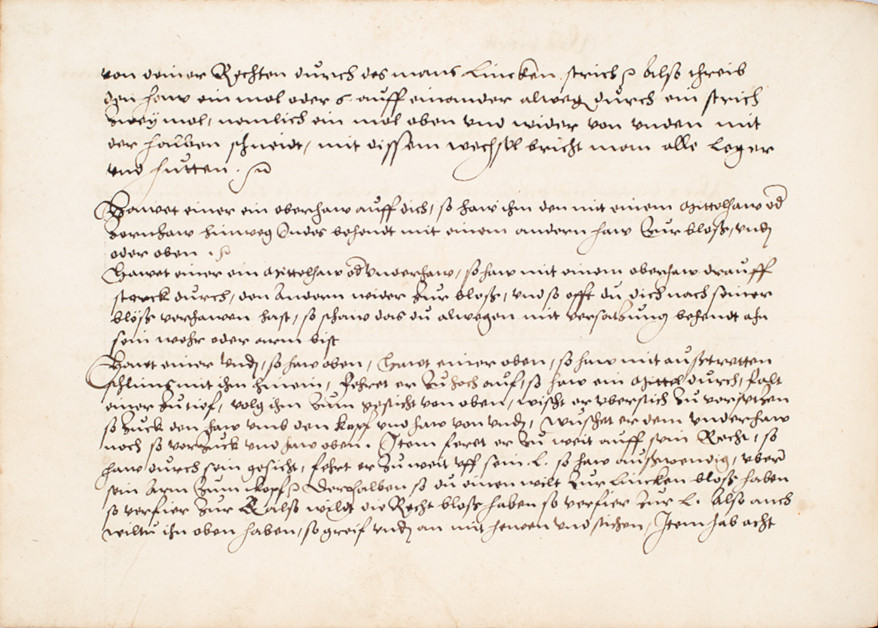 von deiner Rechten durch des mans Lincken strich Also threib
den haw ein mol oder 6 auff einander alweg durch ein strich
zwey mol, nemlich ein mol oben und wider von unden mit
der halben schneidt, mit dissem wechsel bricht man alle Leger
und hutten.
Hawet einer ein oberhaw auff dich, so haw ihm den mit einem Mittelhaw od
Zornhaw hinweg Indes behendt mit einem andern haw Zur blosß, und
oder oben.
Hawet einer ein Mittelhaw od Underhaw, so haw mit einem oberhaw drauff
sterck durch, den Andern wider Zur blosß, und so offt du dich nach seiner
blösß verhawen hast, so schaw das du alwegen mit versatzung behendt ahn
sein wehr oder arm bist
Hawt einer Und, so haw oben, Hawet einer oben, so haw mit ausßtretten
schlims mit ihm hinein, fehret er zu hoch auf, so haw ein Mittel durch, falt
einer zu tief, volg ihm Zum gesicht von oben, wischt er ubersich Zu versetzen
so Zuck den haw umb den kopf und haw von und, wüschet er dem underhaw
noch so verzuck und haw oben. Item feret er Zu weit auff sein Recht, so
haw durch sein gesicht, fehrt er Zu weit uff sein L. so haw ausßwendig, uber
sein Arm Zum kopf Derhalben so du einen wilt Zur Lincken blosß haben
so verfier Zur R also wildt die Recht blosß haben so verfier Zur L. Also auch
wiltu ihn oben haben, so greif und an mit hewen und stichen, Item hab acht